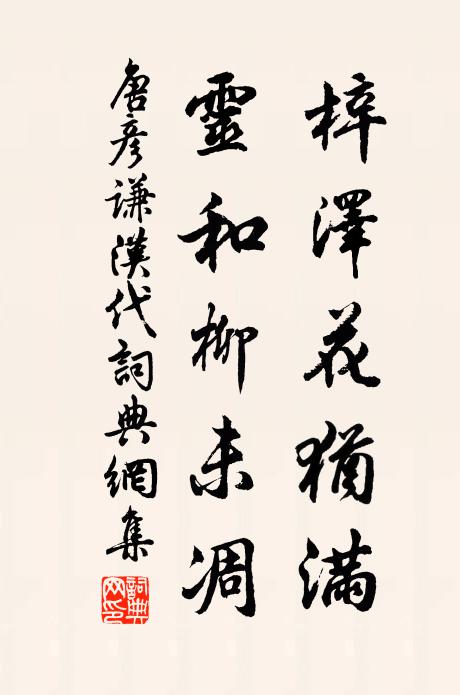 梓澤花猶滿
靈和柳未凋
唐彥謙漢代詞典網集
詞典網印